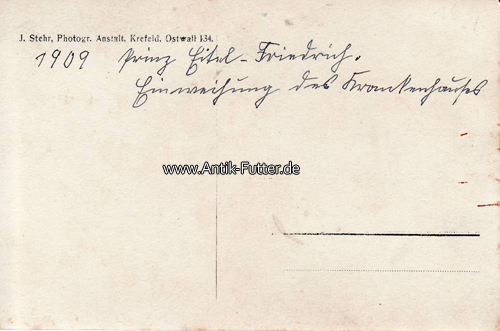 J. Stehr, Photogr. Anstalt, Krefeld, Ostwall 134.
1909 Prinz Eitel-Friedrich.
Einweihung des Krankenhauses
www.Antik-Futter.de